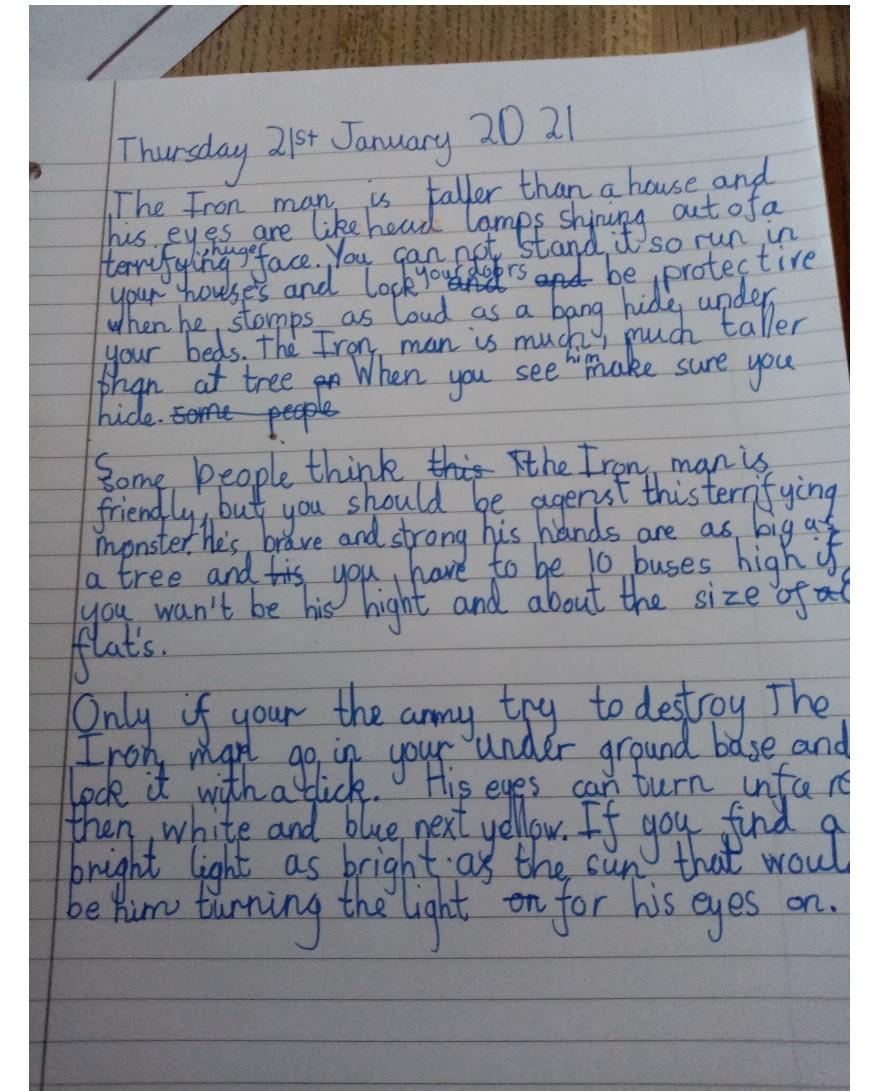 Thursday 21st January 2021
The Iron man is taller than a house and
his eyes are like head lamps shining out of a
terrifying huge face. You can not stand it so run in
your houses and lock your doors and be protective
when he stomps as loud as a bang hide under
your beds. The Iron man is much, much taller
than at tree When you see him make sure you
hide. some people
Some people think this the Iron man is
friendly, but you should be agenst this terrifying
monster. He's brave and strong his hands are as big as
a tree and his you have to be 10 buses high if
you wan't be his hight and about the size of
flat's.
Only if your the army try to destroy The
Iron man go in your under ground base and
lock it with a click. His eyes can turn infa re
then white and blue next yellow. If you find a
bright light as bright as the sun that woul
be him turning the light on for his eyes on.